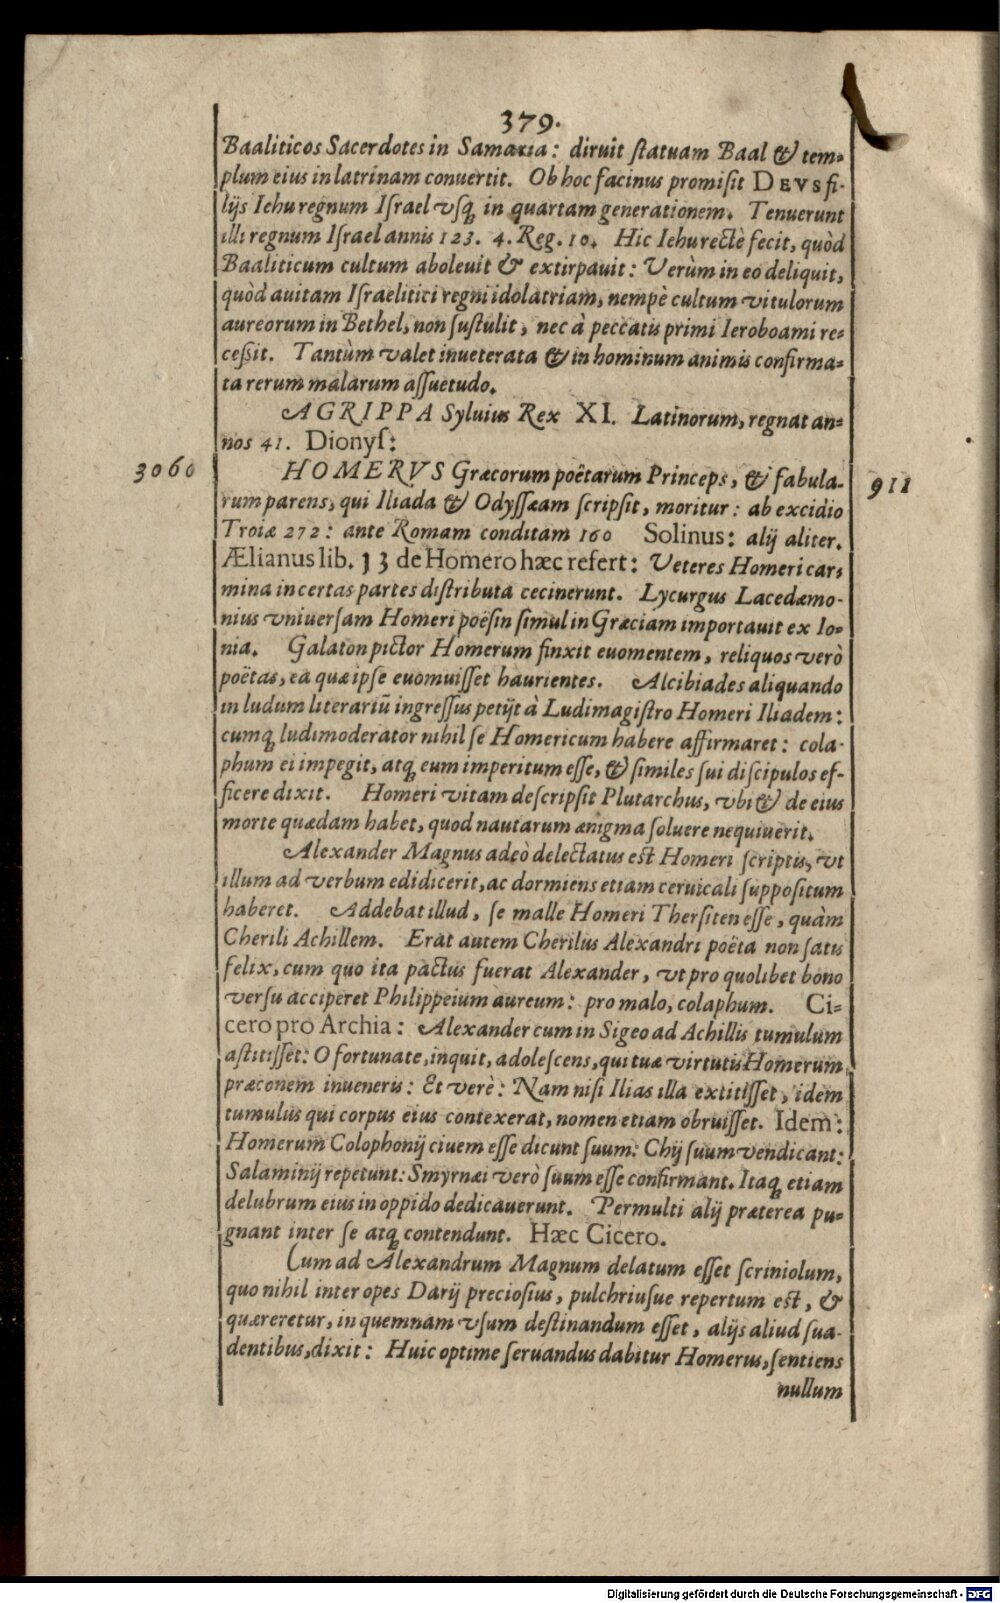 379.
Baaliticos Sacerdotes in Samaria: diruit ſtatuam Baal & tem-
plum eius in latrinam conuertit. Ob hoc facinus promiſit DEVS fi-
lijs Iehu regnum Iſrael vſq; in quartam generationem. Tenuerunt
illi regnum Iſrael annis 123. 4. Reg. 10. Hic Iehu rectè fecit, quòd
Baaliticum cultum aboleuit & extirpauit: Verùm in eo deliquit,
quòd auitam Iſraelitici regni idolatriam, nempè cultum vitulorum
aureorum in Bethel, non ſuſtulit, nec à peccatis primi Ieroboami re-
ceſſit. Tantùm valet inueterata & in hominum animis confirma-
ta rerum malarum aſſuetudo.
AGRIPPA Syluius Rex XI. Latinorum, regnat an-
nos 41. Dionyſ:
3060 HOMERVS Græcorum poëtarum Princeps, & fabula- 911
rum parens, qui Iliada & Odyſſæam ſcripſit, moritur: ab excidio
Troiæ 272: ante Romam conditam 160 Solinus: alij aliter.
Ælianus lib. 13 de Homero hæc refert: Veteres Homeri car-
mina in certas partes diſtributa cecinerunt. Lycurgus Lacedæmo-
nius vniuerſam Homeri poëſin ſimul in Græciam importauit ex Io-
nia. Galaton pictor Homerum finxit euomentem, reliquos verò
poëtas, ea quæ ipſe euomuiſſet haurientes. Alcibiades aliquando
in ludum literariũ ingreſſus petijt à Ludimagiſtro Homeri Iliadem:
cumq; ludimoderator nihil ſe Homericum habere affirmaret: cola-
phum ei impegit, atq; eum imperitum eſſe, & ſimiles ſui diſcipulos ef-
ficere dixit. Homeri vitam deſcripſit Plutarchus, vbi & de eius
morte quædam habet, quod nautarum ænigma ſoluere nequiuerit.
Alexander Magnus adeò delectatus eſt Homeri ſcriptis, vt
illum ad verbum edidicerit, ac dormiens etiam ceruicali ſuppoſitum
haberet. Addebat illud, ſe malle Homeri Therſiten eſſe, quàm
Cherili Achillem. Erat autem Cherilus Alexandri poëta non ſatis
felix, cum quo ita pactus fuerat Alexander, vt pro quolibet bono
verſu acciperet Philippeium aureum: pro malo, colaphum. Ci-
cero pro Archia: Alexander cum in Sigeo ad Achillis tumulum
aſtitiſſet: O fortunate, inquit, adoleſcens, qui tuæ virtutis Homerum
præconem inueneris: Et verè: Nam niſi Ilias illa extitiſſet, idem
tumulus qui corpus eius contexerat, nomen etiam obruiſſet. Idem:
Homerum Colophonij ciuem eſſe dicunt ſuum: Chij ſuum vendicant:
Salaminij repetunt: Smyrnæi verò ſuum eſſe confirmant. Itaq; etiam
delubrum eius in oppido dedicauerunt. Permulti alij præterea pu-
gnant inter ſe atq; contendunt. Hæc Cicero.
Cum ad Alexandrum Magnum delatum eſſet ſcriniolum,
quo nihil inter opes Darij precioſius, pulchriuſue repertum eſt, &
quæreretur, in quemnam vſum deſtinandum eſſet, alijs aliud ſua-
dentibus, dixit: Huic optime ſeruandus dabitur Homerus, ſentiens
nullum
Digitalisierung gefördert durch die Deutsche Forschungsgemeinschaft - DFG